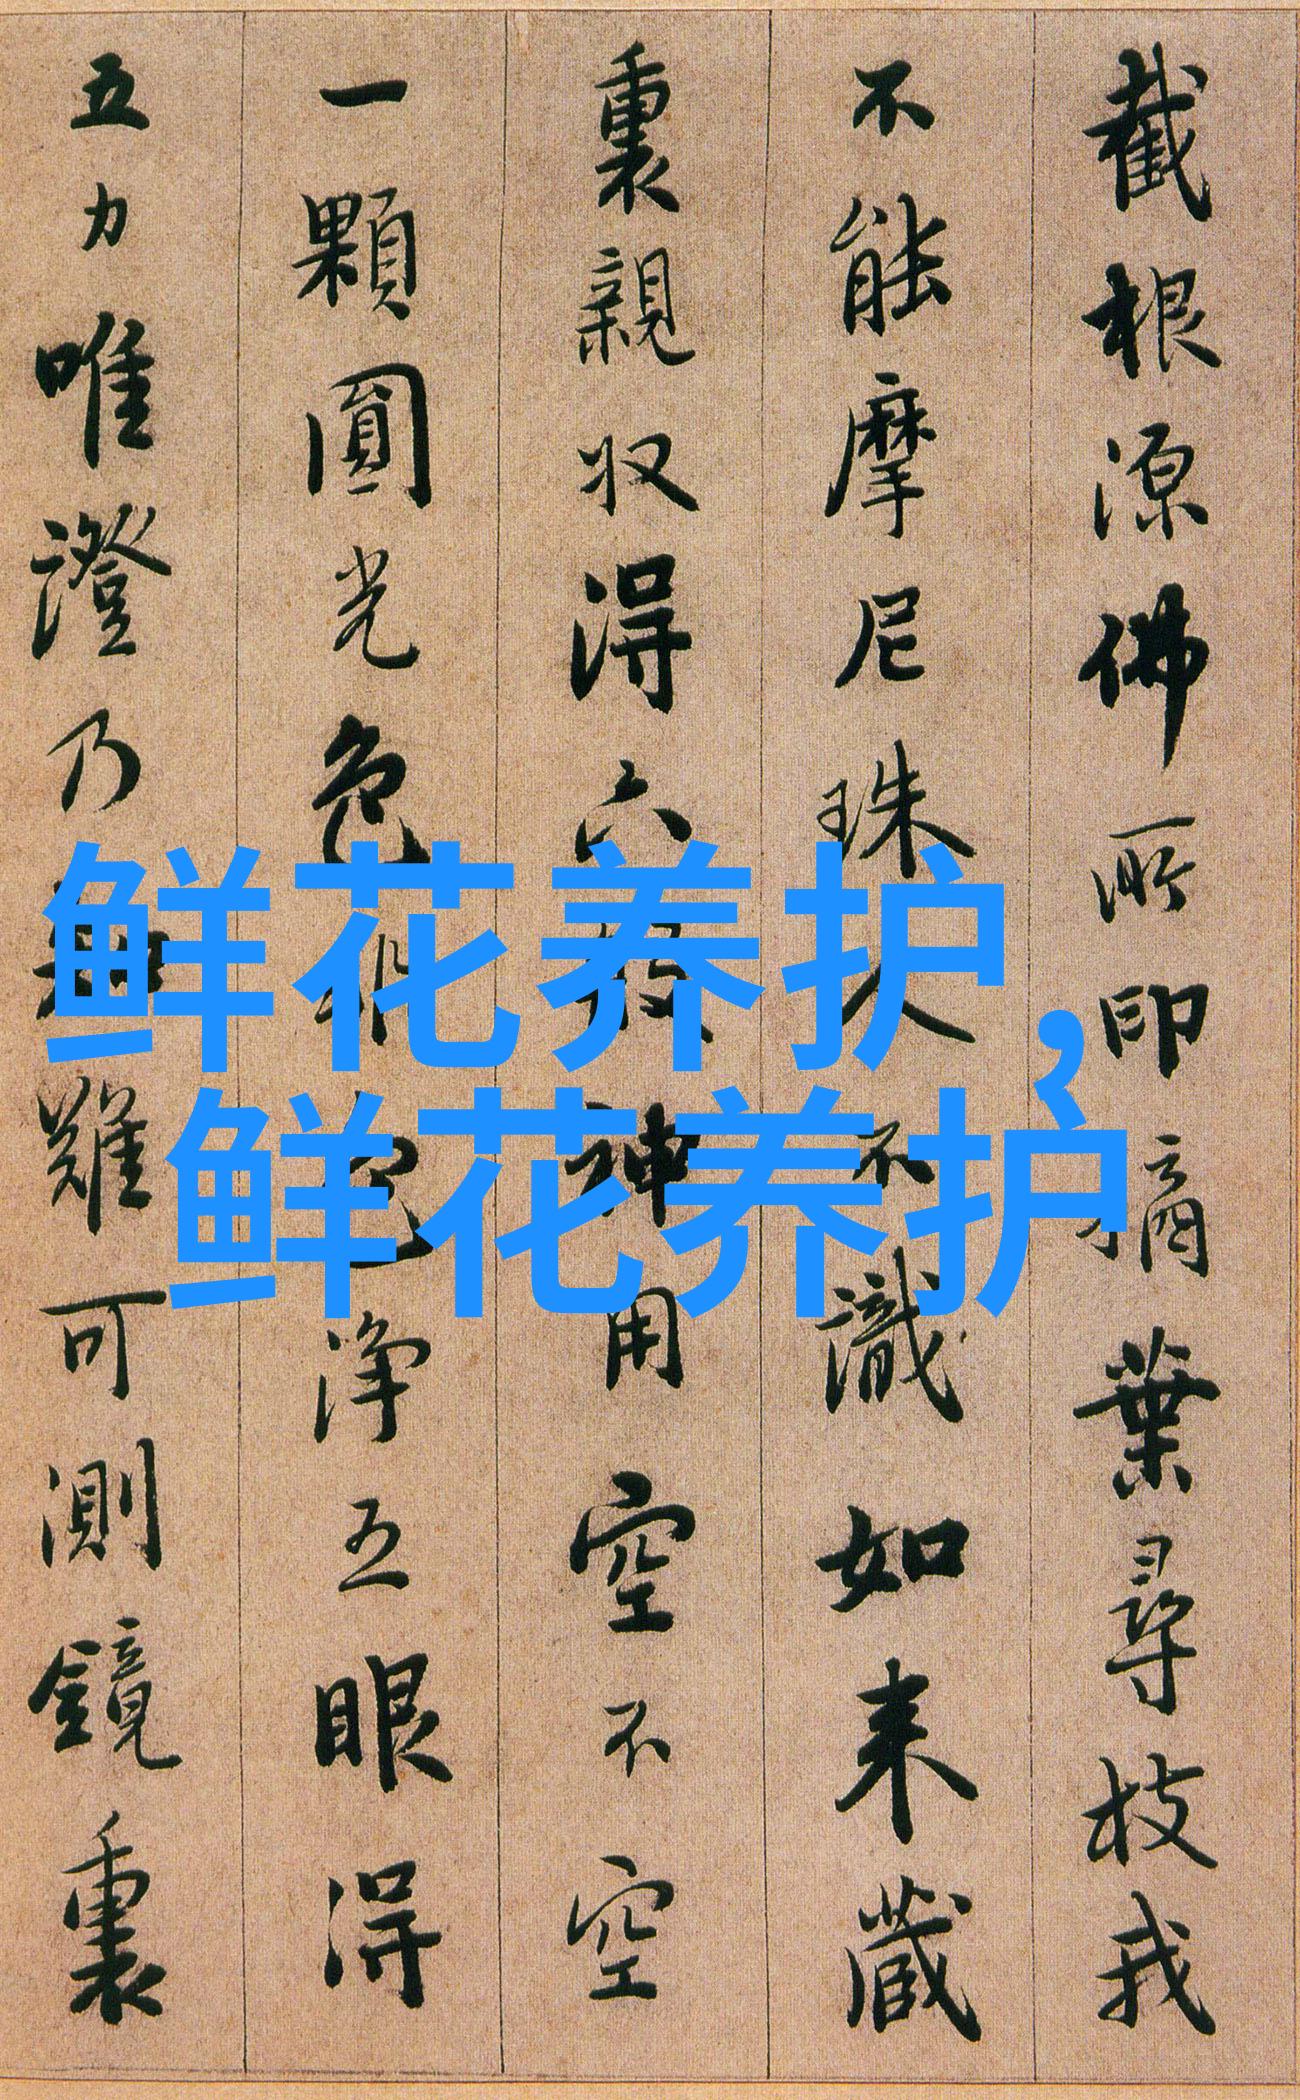 截根源佛所印摘葉尋枝我
不能摩尼珠人不識如来藏
裏親収得六般神用空不空
一顆圓光色非色淨五眼得
五力唯證乃知難可測鏡裏
鲜花养护,
鲜花养护